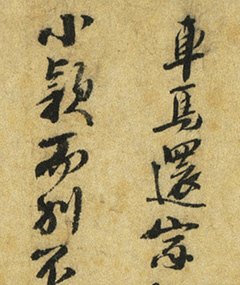 車馬還家
小顏而別不